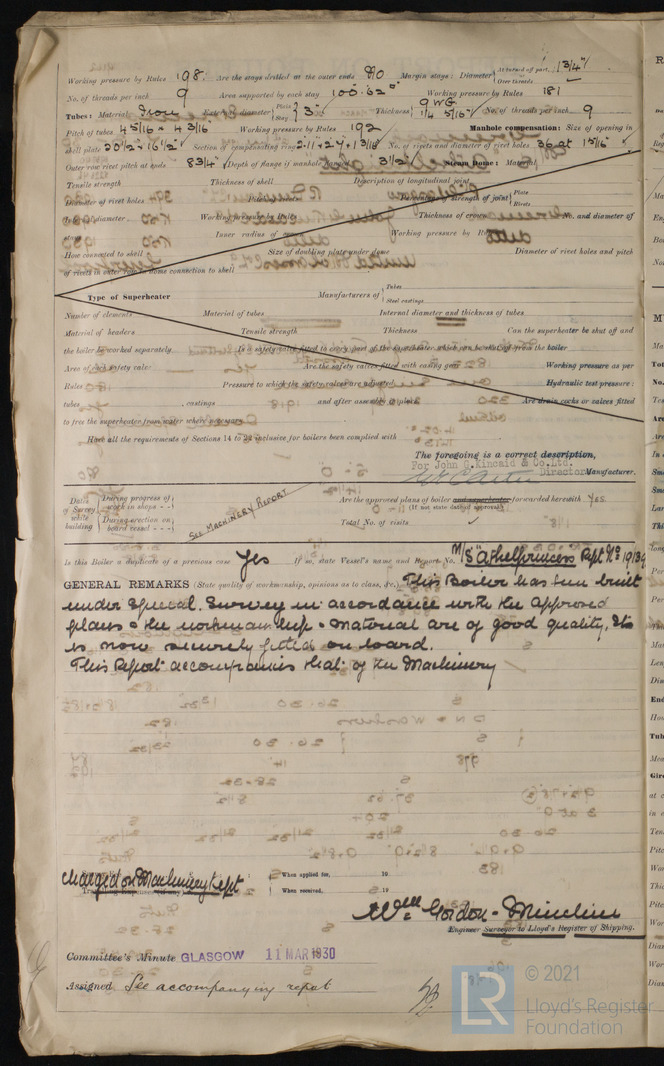 Working pressure by Rules 198. Are the stays drilled at the outer ends No Margin stays: Diameter { At turned off part, 1 3/4"
Over threads
No. of threads per inch 9 Area supported by each stay 100.62 □" Working pressure by Rules 181
Tubes: Material Iron External diameter { Plain
Stay } 3" Thickness { 9 WG
1/4 5/16" No. of threads per inch 9
Pitch of tubes 4 5/16 × 4 3/16 Working pressure by Rules 192 Manhole compensation: Size of opening in
shell plate 20 1/2 × 16 1/2" Section of compensating ring No. of rivets and diameter of rivet holes 36 at 15/16"
Outer row rivet pitch at ends 8 3/4" Depth of flange if manhole flanged 3 1/2" Steam Dome: Material
Tensile strength Thickness of shell Description of longitudinal joint
Diameter of rivet holes Pitch of rivets Percentage of strength of joint { Plate
Rivets
Internal diameter Working pressure by Rules Thickness of crown No. and diameter of
stays Inner radius of crown Working pressure by Rules
How connected to shell Size of doubling plate under dome Diameter of rivet holes and pitch
of rivets in outer row in dome connection to shell
Type of Superheater Manufacturers of { Tubes
Steel castings
Number of elements Material of tubes Internal diameter and thickness of tubes
Material of headers Tensile strength Thickness Can the superheater be shut off and
the boiler be worked separately Is a safety valve fitted to every part of the superheater which can be shut off from the boiler
Area of each safety valve Are the safety valves fitted with easing gear Working pressure as per
Rules Pressure to which the safety valves are adjusted Hydraulic test pressure:
tubes , castings and after assembly in place Are drain cocks or valves fitted
to free the superheater from water where necessary
Have all the requirements of Sections 14 to 22 inclusive for boilers been complied with
The foregoing is a correct description,
For John G. Kincaid & Co. Ltd.
Director Manufacturer.
Dates of Survey while building { During progress of work in shops - -
During erection on board vessel - - - } See Machinery Report Are the approved plans of boiler and superheater forwarded herewith Yes
(If not state date of approval.)
Total No. of visits
Is this Boiler a duplicate of a previous case Yes If so, state Vessel's name and Report No. M/S "Athelprincess" Rept No 19134
GENERAL REMARKS (State quality of workmanship, opinions as to class, &c. This Boiler has been built
under Special. Survey in accordance with the approved
plans & the workmanship & material are of good quality. It
is now securely fitted on board.
This Report accompanies that of the Machinery
Charged on Machinery Rept
When applied for, 19
When received, 19
Wm Gordon-
Engineer Surveyor to Lloyd's Register of Shipping.
Committee's Minute GLASGOW 11 MAR 1930
Assigned See accompanying report
© 2021
Lloyd's Register
Foundation